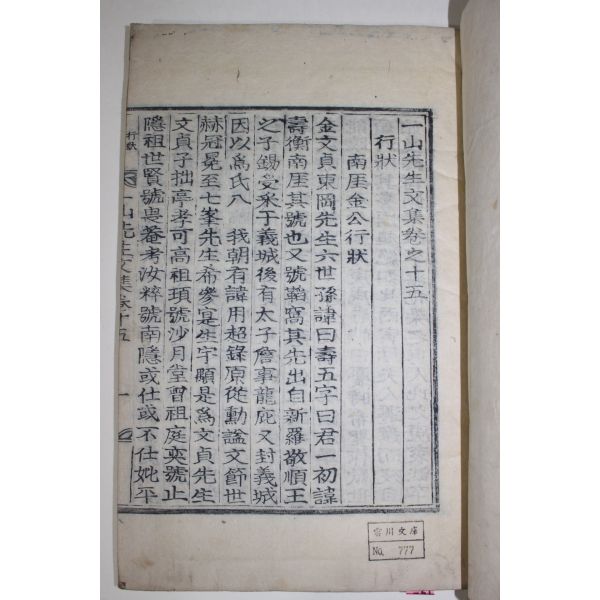 一山先生文集卷之十五
行狀
南厓金公行狀
金文貞東岡先生六世孫諱曰壽五字曰君一初諱
壽衡南厓其號也又號鞱窩其先出自新羅敬順王
之子錫受采于義城後有太子詹事龍庇又封義城
因以爲氏入 我朝有諱用超錄原從勳謚文節世
赫冠冕至七峯先生希參寔生宇顒是爲文貞先生
文貞子拙亭孝可高祖頊號沙月堂曾祖庭奭號止
隱祖世賢號粤菴考汝粹號南隱或仕或不仕妣平
行狀
一山先生文集卷十五
一
雲川文庫
No. 777